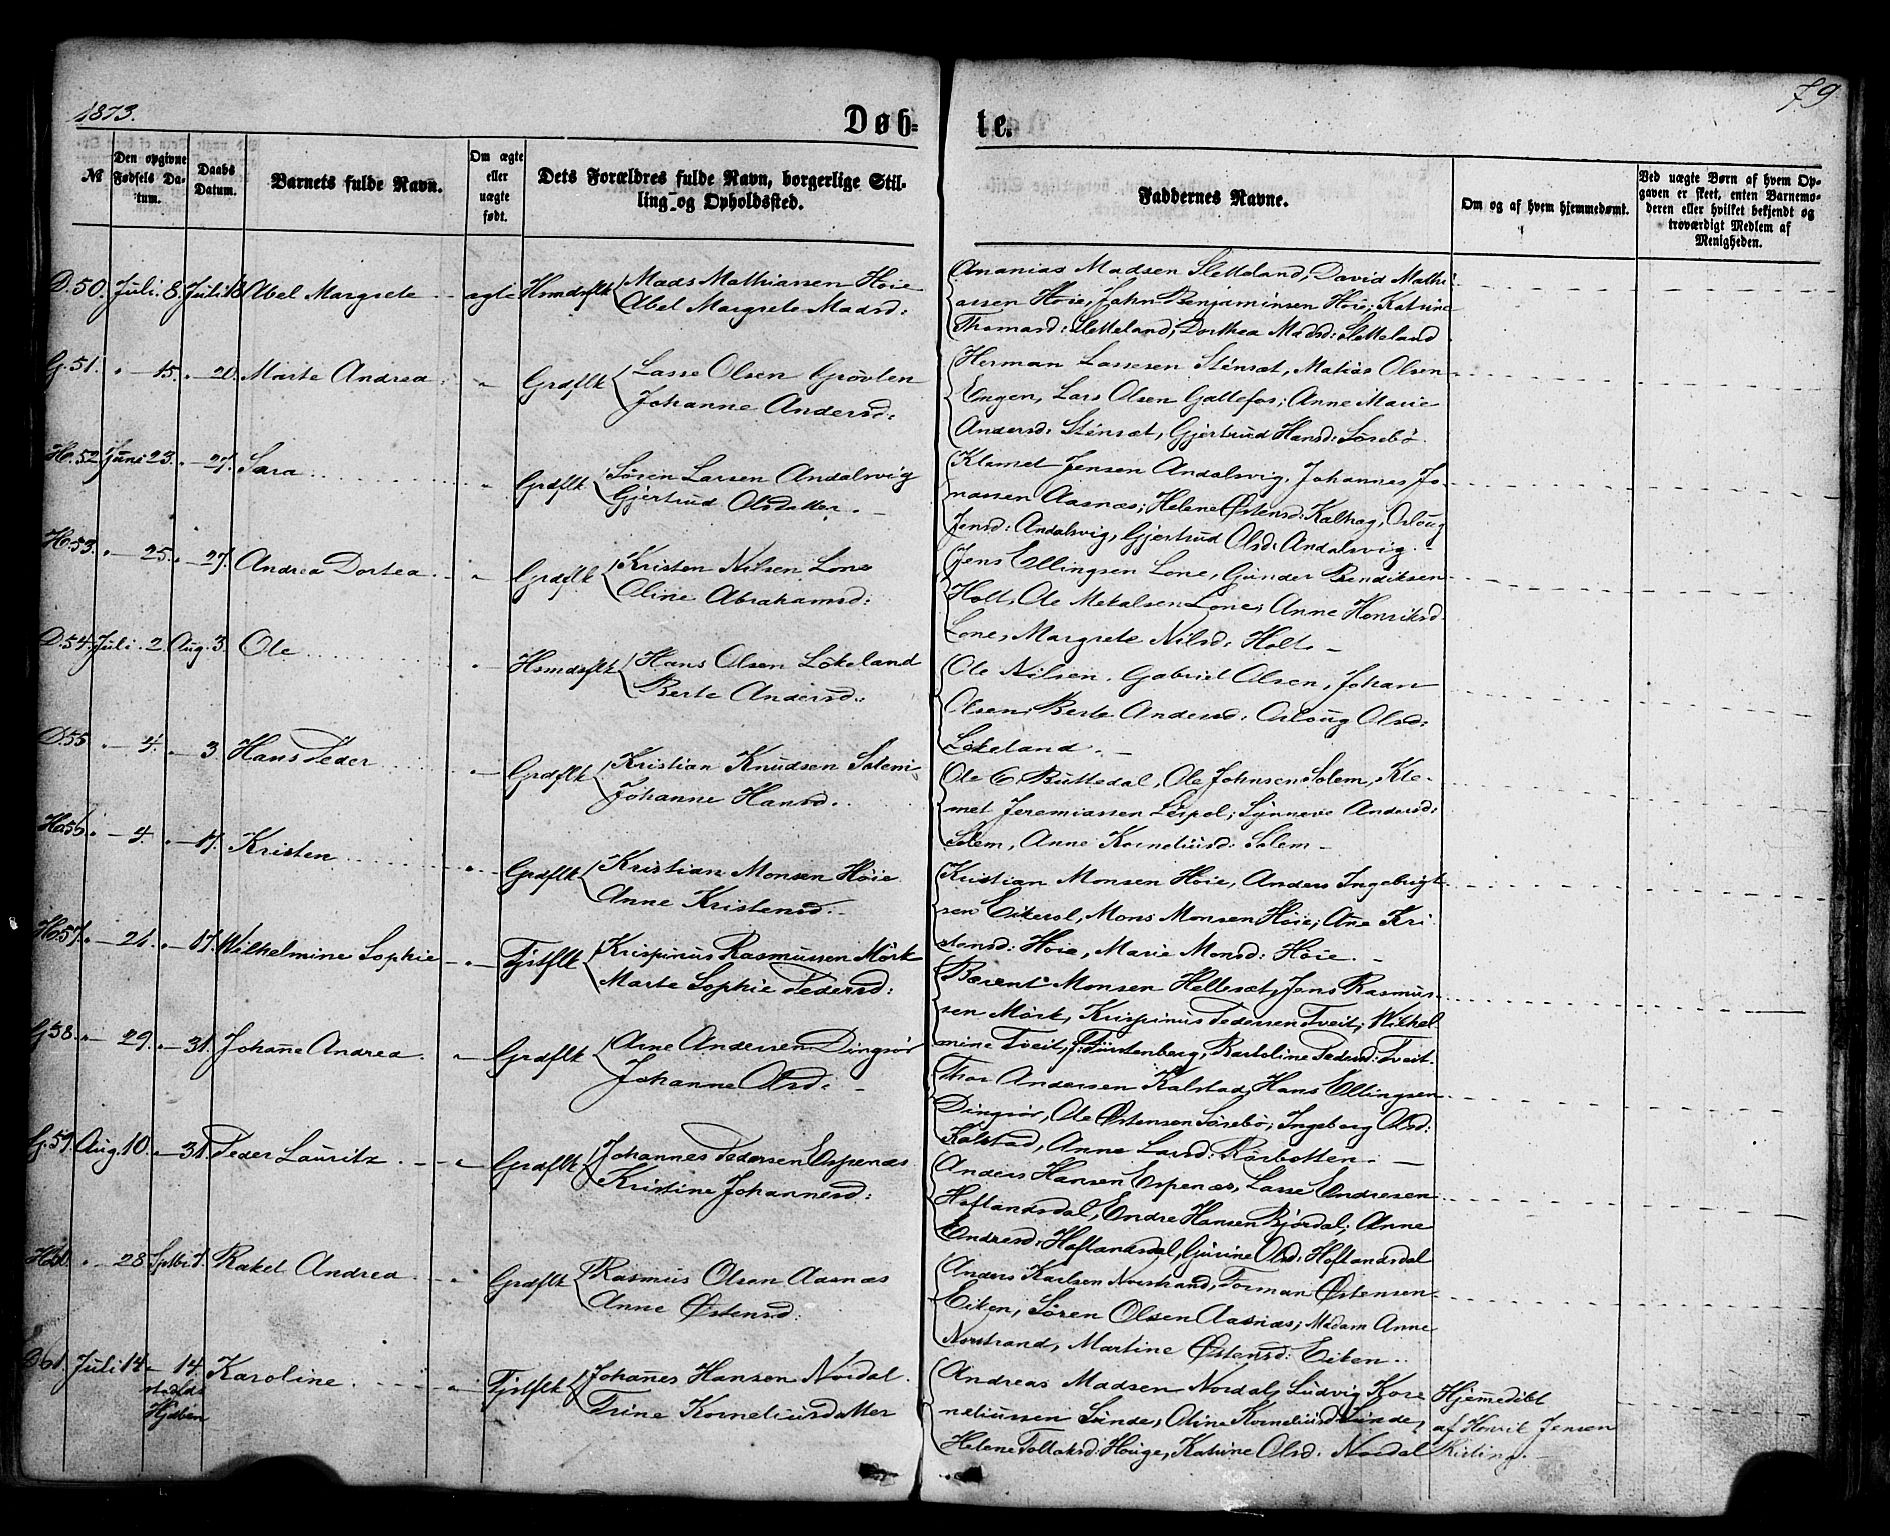 1873.
79
Døbte.
№
Den opgivne Fødsels Datum.
Daabs Datum.
Barnets fulde Navn.
Om ægte eller uægte født.
Dets Forældres fulde Navn, borgerlige Stilling og Opholdssted.
Faddernes Navne.
Om og af hvem hjemmedømt.
Ved uægte Børn af hvem Opgaven er skeet, enten Barnemoderen eller hvilket bekjendt og troværdigt Medlem af Menigheden.
D. 50. Juli. 8. Juli 18. Abel Margrete ægte Hsmdsflk Mads Mathiassen Høie
Abel Margrete Madsd:
Ananias Madsen Sletteland, David Mathi
assen Høie, John Benjaminsen Høie; Katrine
Thomasd: Sletteland, Dorthea Madsd: Sletteland
G. 51. " 15. " 20. Marte Andrea " Grdflk Lasse Olsen Grøvlen
Johanne Andersd:
Herman Lassesen Stensæt, Matias Olsen
Engen, Lars Olsen Gallefos; Anne Marie
Andersd: Stensæt, Gjertrud Hansd: Sørebø.
H. 52. Juni 23. " 27. Sara " Grdflk Søren Larsen Andalsvig
Gjertrud Olsdatter. -
Klemet Jensen Andalsvig, Johannes Jo-
nassen Aasnæs; Helene Østensd: Kalhag, Oloug
Jensd: Andalsvig, Gjertrud Olsd: Andalsvig. -
H. 53. " 25. " 27. Andrea Dortea " Grdflk Kristen Nilsen Lone
Oline Abrahamsd:
Jens Ellingsen Lone, Gunder Bendiksen
Holt, Ole Mekalsen Lone; Anne Henriksd
Lone, Margrete Nilsd: Holt. -
D. 54. Juli. 2. Aug. 3. Ole " Hsmdsflk Hans Olsen Løkeland
Berte Andersd:
Ole Nilsen, Gabriel Olsen, Johan
Olsen; Berte Andersd: Oloug Olsd:
Løkeland. -
D. 55 " 4. " 3 Hans Peder " Grdflk Kristian Knudsen Solem
Johanne Hansd.
Ole C. Buttedal, Ole Johnsen Solem, Kle-
met Jeremiassen Lespol; Synneve Andersd:
Solem, Anne Korneliusd: Solem -
H. 56. " 4. " 17. Kristen " Grdflk Kristian Monsen Høie
Anne Kristensd. -
Kristian Monsen Høie, Anders Ingebrigt-
sen Eikerol, Mons Monsen Høie; Ane Kri
stensd: Høie, Marie Monsd: Høie. -
H. 57. " 21. " 17. Wilhelmine Sophie " Tjstflk Krispinus Rasmussen Mørk
Marte Sophie Pedersd:
Berent Monsen Hellesæt, Jens Rasmus-
sen Mørk, Krispinus Pedersen Tveit; Wilhel
mine Tveit, f: Fürstenberg, Bartoline Pedersd: Tveit.
G. 58. " 29. " 31. Johanne Andrea " Grdflk Arne Andersen Dingsør
Johanne Olsd. -
Thor Andersen Kalstad, Hans Ellingsen
Dingsør, Ole Østensen Sørebø; Ingeborg Olsd:
Kalstad, Anne Larsd: Rørbotten. -
G. 59. Aug. 10. " 31. Peder Lauritz " Grdflk Johannes Pedersen Espenæs
Kristine Johannesd:
Anders Hansen Espenæs, Lasse Endresen
Hoflandsdal, Endre Hansen Bjordal; Anne
Endresd: Hoflandsdal, Gurine Olsd: Hoflandsdal
H. 60. " 28. Septbr 7. Rakel Andrea " Grdflk Rasmus Olsen Aasnæs
Anne Østensd:
Anders Karlsen Norstrand, Torman Østensen
Eiken, Søren Olsen Aasnæs; Madam Anne
Norstrand, Martine Østensd: Eiken.
D. 61. Juli 14 - 14. Karoline " Tjstflk Johannes Hansen Nordal
stedløs
Hjdben
Trine Korneliusdatter
Andreas Madsen Nordal, Ludvig Kor
neliussen Sunde; Oline Korneliusd: Sunde,
Helene Tollaksd: Houge, Katrine Olsd: Nordal
Hjemmedøbt
af Henrik Jensen
Risting. -